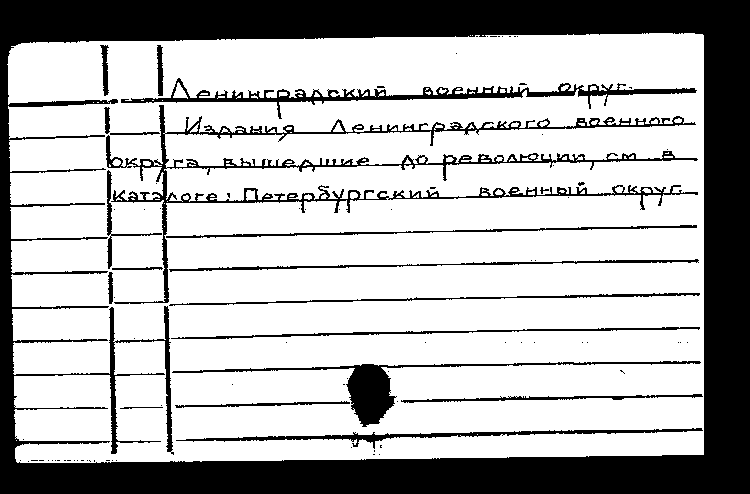 Ленинградский военный округ.
Издания Ленинградского военного
округа, вышедшие до революции, см. в
каталоге: Петербургский военный округ.